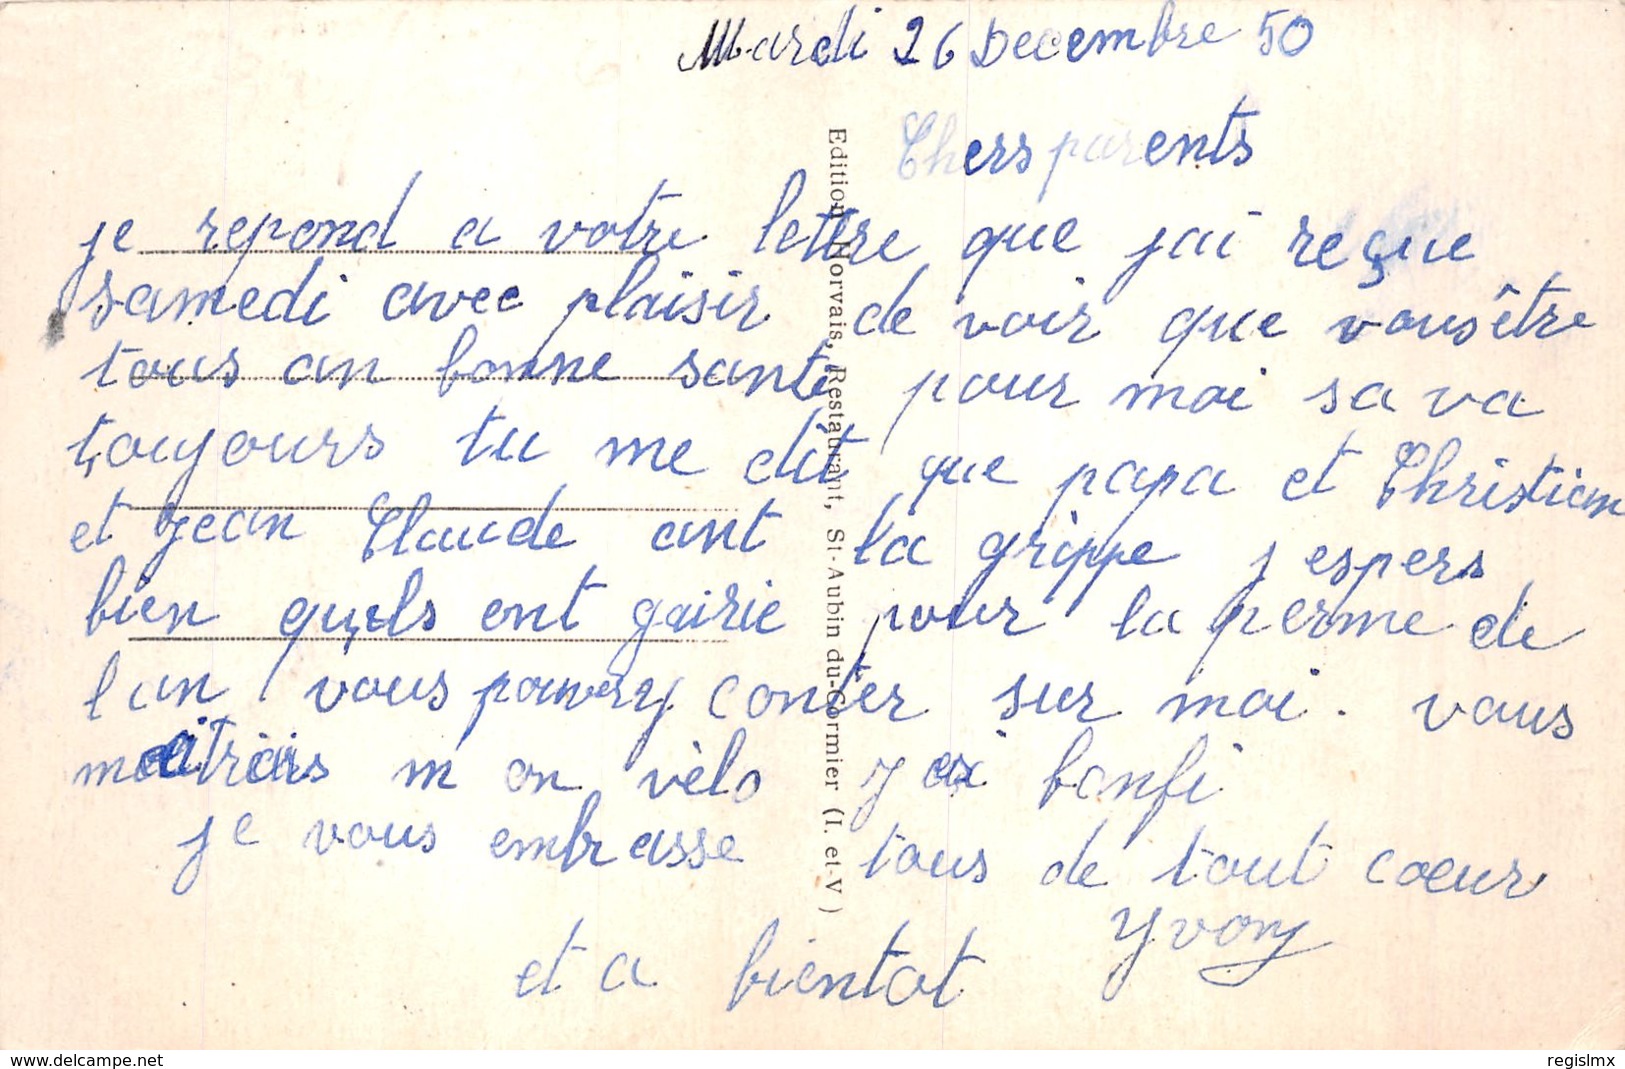 Mardi 26 Decembre 50
Chers parents
je repond a votre lettre que jai reçue
samedi avec plaisir de voir que vous être
tous an bonne santé pour moi sa va
toujours tu me dit que papa et Christian
et jean Claude ont la grippe j espers
bien quils ont gairie pour la perme de
l an vous pouvery conter sur moi. vous
m on vèlo j ai
je vous embrasse tous de tout coeur
et a bientot Yvon
Edition Horvais, Restaurant, St-Aubin du-Cormier (I. et-V)
www.delcampe.net
regislmx